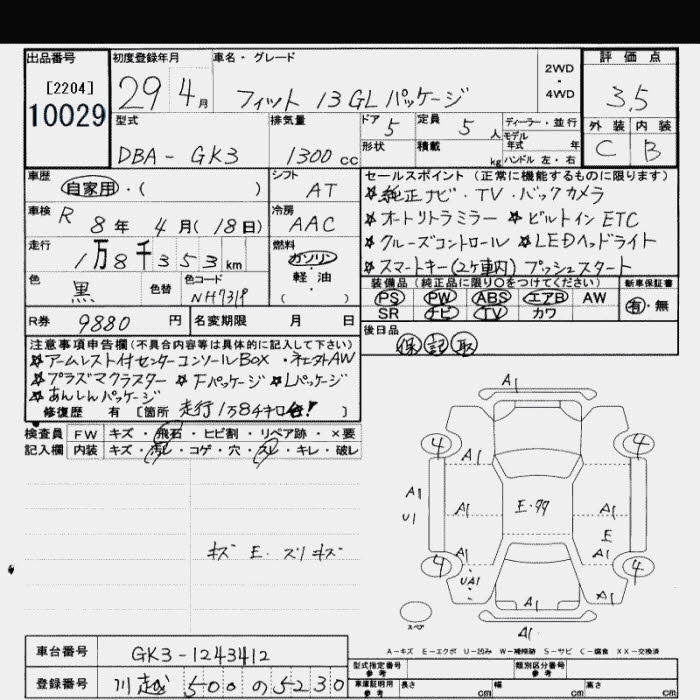 出品番号 初度登録年月 車名・グレード 評価点
[2204]
10029
29 4月 フィット 13GLパッケージ 2WD・4WD 3.5
型式 排気量 ドア 5 定員 5人 ディーラー・並行 外装 内装
モデル年式 年
DBA-GK3 1300cc 形状 積載 kg ハンドル 左・右 C B
車歴 シフト セールスポイント (正常に機能するものに限ります)
自家用・( ) AT ☆純正ナビ・TV・バックカメラ
車検 R 8年 4月(18日) 冷房 AAC ☆オートリトラミラー ☆ビルトインETC
走行 燃料 ☆クルーズコントロール ☆LEDヘッドライト
1万8千353km ガソリン・軽油・( ) ☆スマートキー(2ヶ車内) プッシュスタート
色 色替 色コード 装備品 (純正品に限り○をつけてください) 新車保証書
黒 NH731P PS PW ABS エアB AW 有・無
SR ナビ TV カワ
R券 9880円 名変期限 月 日 後日品
保 記 取
注意事項申告欄 (不具合内容等は具体的に記入して下さい)
☆アームレスト付センターコンソールBOX
☆プラズマクラスター ☆Fパッケージ ☆Lパッケージ
☆あんしんパッケージ
修復歴 有 [箇所 走行1万8千キロ台! ]
検査員 FW キズ・飛石・ヒビ割・リペア跡・×要
記入欄 内装 キズ・汚レ・コゲ・穴・スレ・キレ・破レ
A1
4 4
A1
A1 A1 E・99 A1
U1
E
キズ E・スリキズ A1 A1
4 4
UA1 A1 A1
スペア
A1
A-キズ E-エクボ U-凹み W-補修跡 S-サビ C-腐食 XX-交換済
車台番号 GK3-1243412 型式指定番号 参考 類別区分番号 参考
登録番号 川越 500 の 5230 車庫証明用 参考 長さ cm 幅 cm 高さ cm